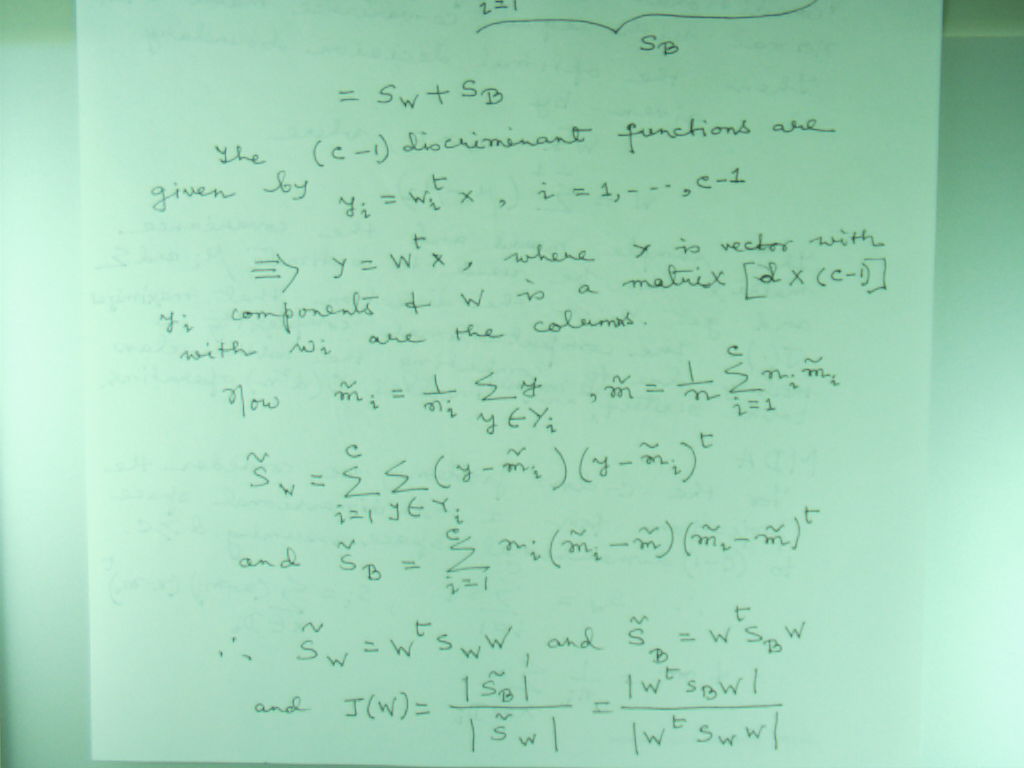 i=1
S_B
= S_W + S_B
The (c-1) discriminant functions are
given by y_i = w_i^t x, i = 1, ---, c-1
⇒ y = W^t x, where y is vector with
y_i components & W is a matrix [d x (c-1)]
with w_i are the columns.
Now m̃_i = 1/n_i Σ_{y∈Y_i} y, m̃ = 1/n Σ_{i=1}^{c} n_i m̃_i
S̃_W = Σ_{i=1}^{c} Σ_{y∈Y_i} (y - m̃_i)(y - m̃_i)^t
and S̃_B = Σ_{i=1}^{c} n_i (m̃_i - m̃)(m̃_i - m̃)^t
∴ S̃_W = W^t S_W W, and S̃_B = W^t S_B W
and J(W) = |S̃_B| / |S̃_W| = |W^t S_B W| / |W^t S_W W|